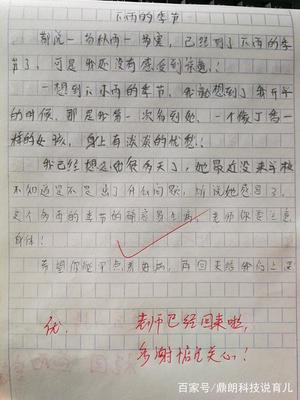 下雨的季节
都说一场秋雨一场寒，已经到了下雨的季
节了，可是我还没有感受到凉意！
一想到下雨的季节，我就想到了我开学
的时候，那是我第一次看到她，一个像丁香一
样的女孩，身上有淡淡的忧愁！
我已经想念她很多天了，她最近没来学校
不知道是不是出了什么问题，听说她感冒了，
这个多雨的季节的确容易生病，老师你要注意
身体！
希望你能早点养好病，再回来给我们上课
优
老师已经回来啦，
多谢 关心！
百家号/鼎朗科技说育儿